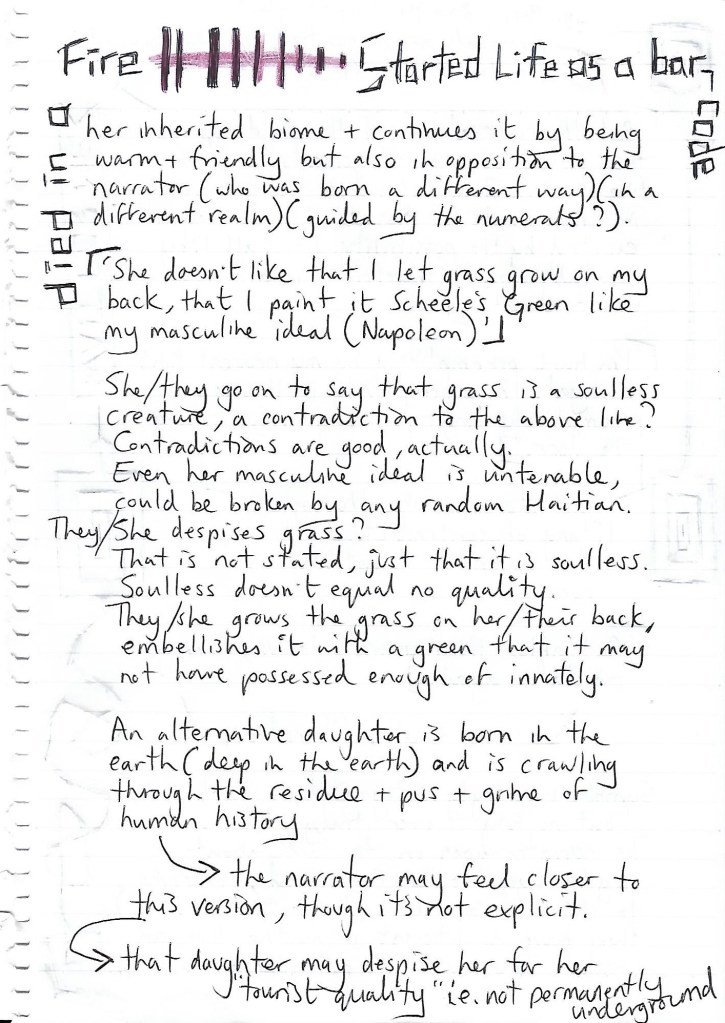 Fire Started Life as a bar,
code
a
in
Pied
her inherited biome + continues it by being
warm + friendly but also in opposition to the
narrator (who was born a different way) (in a
different realm) (guided by the numerals?).
「'She doesn't like that I let grass grow on my
back, that I paint it Scheele's Green like
my masculine ideal (Napoleon)'」
She/they go on to say that grass is a soulless
creature, a contradiction to the above line?
Contradictions are good, actually.
Even her masculine ideal is untenable,
could be broken by any random Haitian.
They/She despises grass?
That is not stated, just that it is soulless.
Soulless doesn't equal no quality.
They/she grows the grass on her/their back,
embellishes it with a green that it may
not have possessed enough of innately.
An alternative daughter is born in the
earth (deep in the earth) and is crawling
through the residue + pus + grime of
human history
the narrator may feel closer to
this version, though it's not explicit.
that daughter may despise her for her
"tourist quality" i.e. not permanently
underground